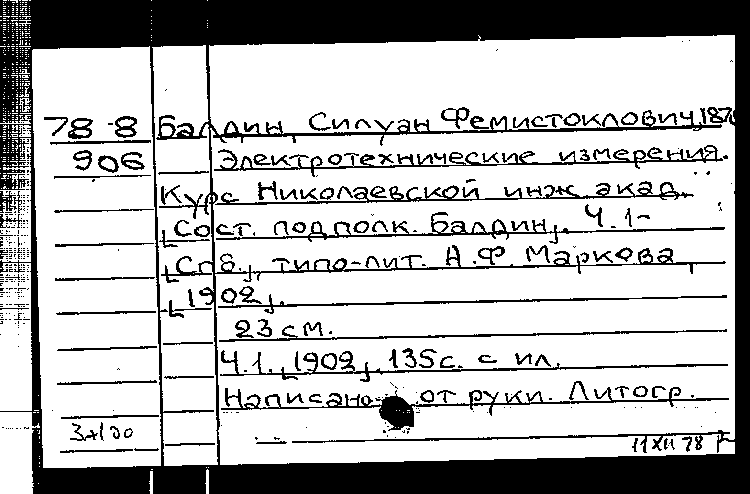 78-8 Балдин, Силуан Фемистоклович, 187
906 Электротехнические измерения.
Курс Николаевской инж. акад.
[Сост. подполк. Балдин]. Ч. 1-
[Спб.], типо-лит. А.Ф. Маркова,
[1902].
23 см.
Ч.1. [1902]. 135 с. с ил.
Написано от руки. Литогр.
11 XII 78